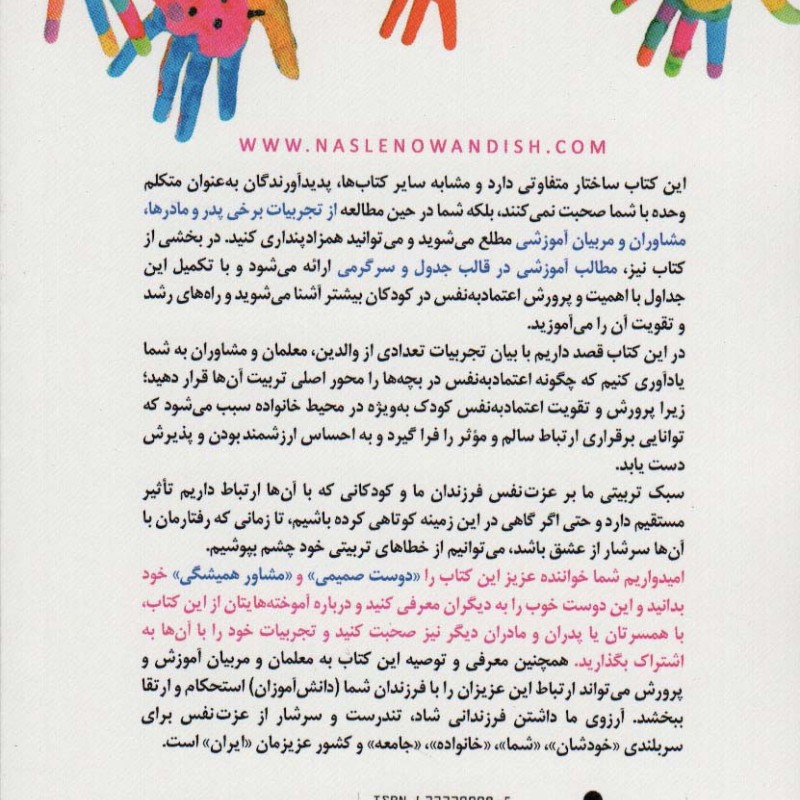 WWW.NASLENOWANDISH.COM
این کتاب ساختار متفاوتی دارد و مشابه سایر کتاب‌ها، پدیدآورندگان به‌عنوان متکلم
وحده با شما صحبت نمی‌کنند، بلکه شما در حین مطالعه از تجربیات برخی پدر و مادرها،
مشاوران و مربیان آموزشی مطلع می‌شوید و می‌توانید همزادپنداری کنید. در بخشی از
کتاب نیز، مطالب آموزشی در قالب جدول و سرگرمی ارائه می‌شود و با تکمیل این
جداول با اهمیت و پرورش اعتمادبه‌نفس در کودکان بیشتر آشنا می‌شوید و راه‌های رشد
و تقویت آن را می‌آموزید.
در این کتاب قصد داریم با بیان تجربیات تعدادی از والدین، معلمان و مشاوران به شما
یادآوری کنیم که چگونه اعتمادبه‌نفس در بچه‌ها را محور اصلی تربیت آن‌ها قرار دهید؛
زیرا پرورش و تقویت اعتمادبه‌نفس کودک به‌ویژه در محیط خانواده سبب می‌شود که
توانایی برقراری ارتباط سالم و مؤثر را فرا گیرد و به احساس ارزشمند بودن و پذیرش
دست یابد.
سبک تربیتی ما بر عزت‌نفس فرزندان ما و کودکانی که با آن‌ها ارتباط داریم تأثیر
مستقیم دارد و حتی اگر گاهی در این زمینه کوتاهی کرده باشیم، تا زمانی که رفتارمان با
آن‌ها سرشار از عشق باشد، می‌توانیم از خطاهای تربیتی خود چشم بپوشیم.
امیدواریم شما خواننده عزیز این کتاب را «دوست صمیمی» و «مشاور همیشگی» خود
بدانید و این دوست خوب را به دیگران معرفی کنید و درباره آموخته‌هایتان از این کتاب،
با همسرتان یا پدران و مادران دیگر نیز صحبت کنید و تجربیات خود را با آن‌ها به
اشتراک بگذارید. همچنین معرفی و توصیه این کتاب به معلمان و مربیان آموزش و
پرورش می‌تواند ارتباط این عزیزان را با فرزندان شما (دانش‌آموزان) استحکام و ارتقا
ببخشد. آرزوی ما داشتن فرزندانی شاد، تندرست و سرشار از عزت‌نفس برای
سربلندی «خودشان»، «شما»، «خانواده»، «جامعه» و کشور عزیزمان «ایران» است.